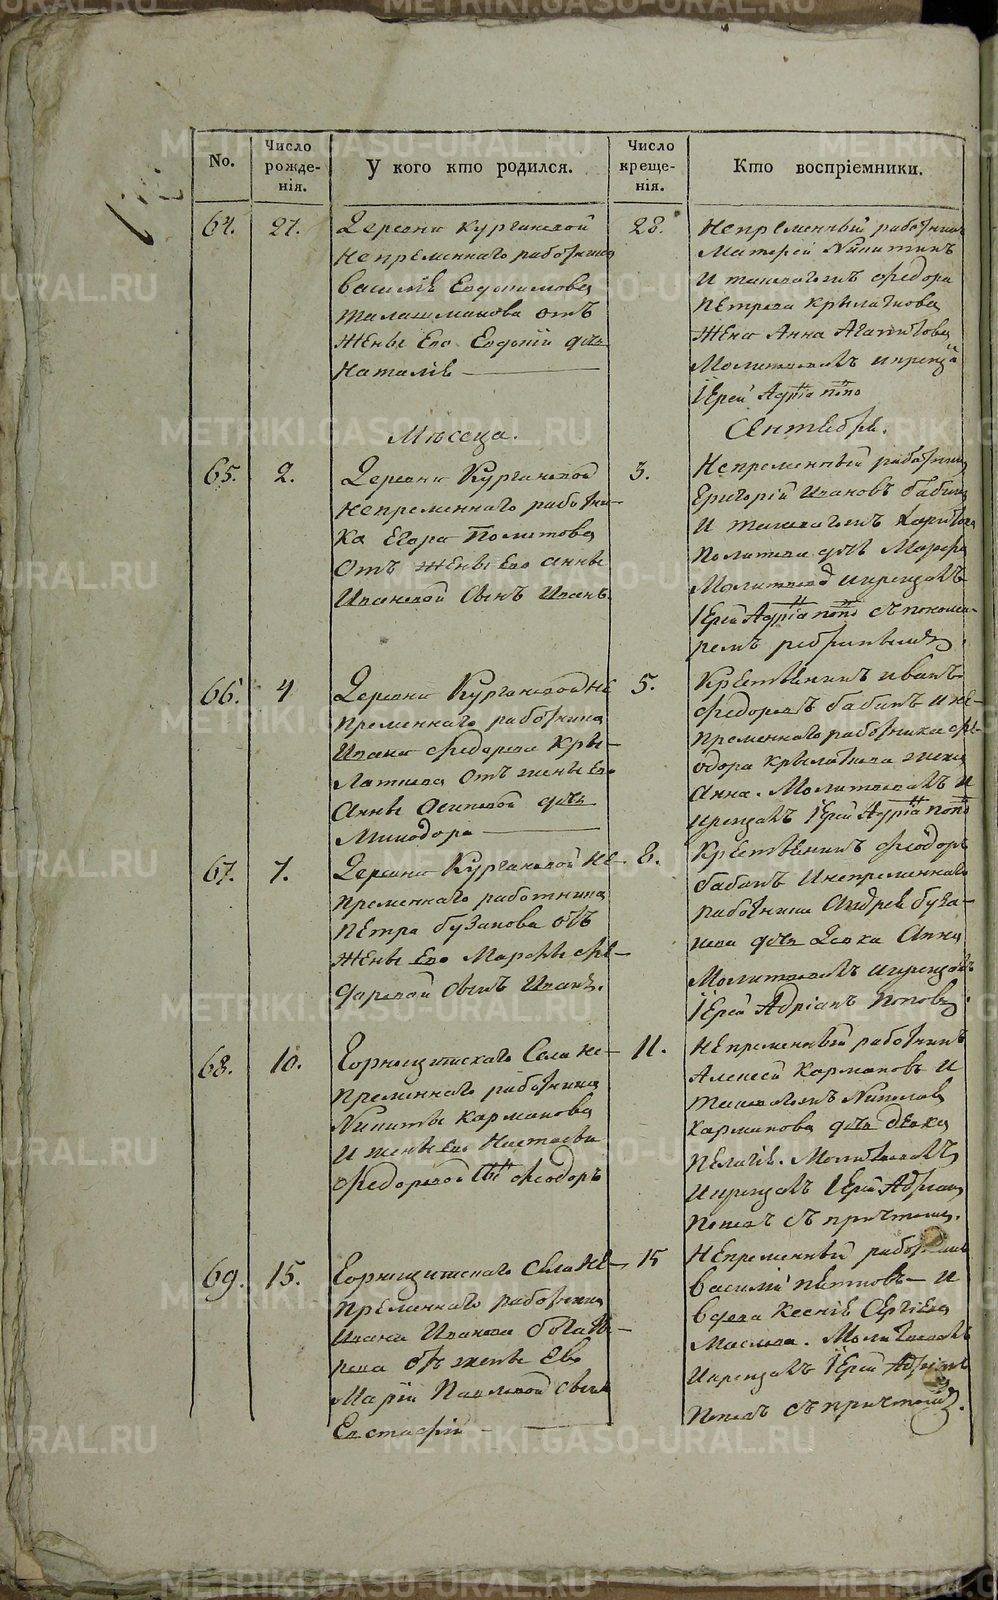 No.
Число рожде-нія.
У кого кто родился.
Число креще-нія.
Кто воспріемники.
64.
27.
Деревни Кургановой
непременнаго работника
Василія Евдокимова
Талашманова отъ
жены Его Евдокіи дочь
Наталія
28.
Непременный работникъ
Никитинъ
и таковагожъ Федора
Петрова Крылаткова
жена Анна
Молитвовалъ и крестилъ
Іерей Адріанъ Попо
Месеца.
Сентября.
65.
2.
Деревни Кургановой
непременнаго работни-
ка Егора Политова
отъ жены Его Анны
Ивановой сынъ Иванъ.
3.
Непременный работникъ
Григорій Ивановъ Бабинъ
и таковагожъ
Политова дочь Марфа
Молитвовалъ и крестилъ
Іерей Адріанъ Попо съ понома-
ремъ
66.
4
Деревни Кургановой не
пременнаго работника
Ивана Федорова Кры-
латкова отъ жены Его
Анны Осиповой дочь
Минодора
5.
Крестьянинъ Иванъ
Федоровъ Бабинъ и не-
пременнаго работника Фе-
одора Крылаткова жена
Анна. Молитвовалъ и
крестилъ Іерей Адріанъ Попо
67.
7.
Деревни Кургановой не-
пременнаго работника
Петра Бузанова отъ
жены Его Марфы Фе-
доровой сынъ Иванъ.
8.
Крестьянинъ Феодоръ
Бабинъ и непременнаго
работника Андрея Буза-
нова дочь Девка Анна
Молитвовалъ и крестилъ
Іерей Адріанъ Поповъ.
68.
10.
Горнощитскаго Села не-
пременнаго работника
Никиты Карманова
и жены Его Настасьи
Федоровой сынъ Феодоръ
11.
Непременный работникъ
Алексей Кармановъ и
таковагожъ Николая
Карманова дочь девка
Пелагія. Молитвовалъ
и крестилъ Іерей Адріанъ
Поповъ съ причтомъ.
69.
15.
Горнощитскаго Села не-
пременнаго работника
Ивана Иванова Богаты-
рева отъ жены Его
Маріи Павловой сынъ
Евстафій
15
Непременный работникъ
Василій Пятковъ и
вдова Ксенія Сергеева
Маслова. Молитвовалъ
и крестилъ Іерей Адріанъ
Поповъ съ причтомъ.
METRIKI.GASO-URAL.RU